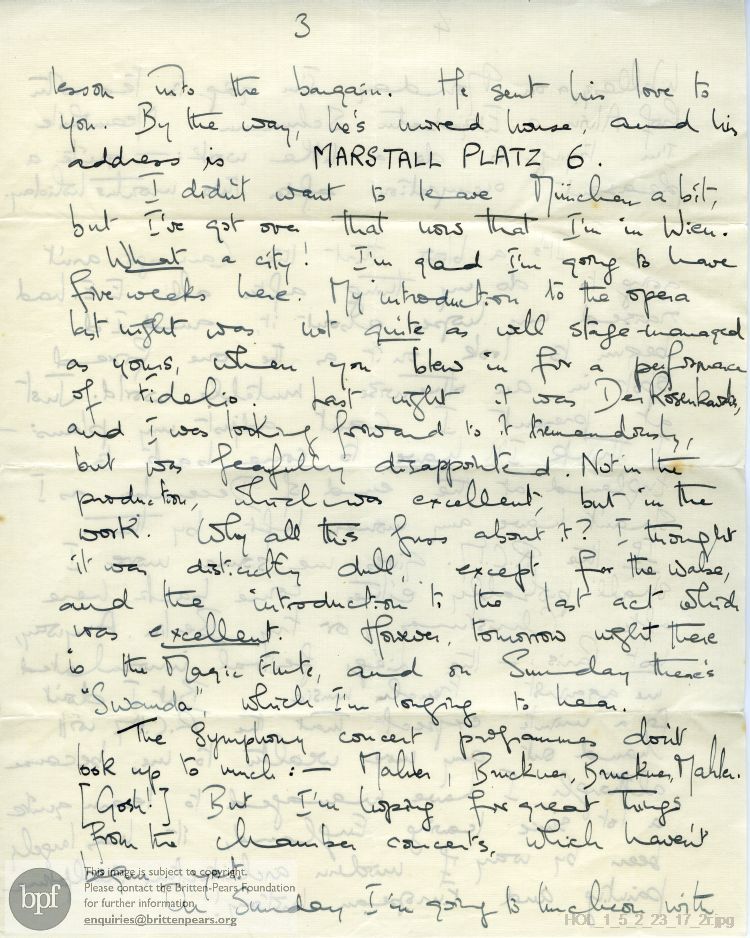 3
lesson into the bargain. He sent his love to
you. By the way, he's moved house, and his
address is MARSTALL PLATZ 6.
I didn't want to leave München a bit,
but I've got over that now that I'm in Wien.
What a city! I'm glad I'm going to have
five weeks here. My introduction to the opera
last night was not quite as well stage-managed
as yours, when you blew in for a performance
of Fidelio. Last night it was Der Rosenkavalier,
and I was looking forward to it tremendously,
but was fearfully disappointed. Not in the
production, which was excellent, but in the
work. Why all this fuss about it? I thought
it was distinctly dull, except for the Walse,
and the introduction to the last act which
was excellent. However, tomorrow night there
is the Magic Flute, and on Sunday there's
"Swanda", which I'm longing to hear.
The Symphony concert programmes don't
look up to much: — Mahler, Bruckner, Bruckner, Mahler.
[Gosh!] But I'm hoping for great things
from the chamber concerts, which haven't
begun yet.
On Sunday I'm going to luncheon with
bpf
This image is subject to copyright.
Please contact the Britten-Pears Foundation
for further information.
enquiries@brittenpears.org
HOL_1_5_2_23_17_2r.jpg